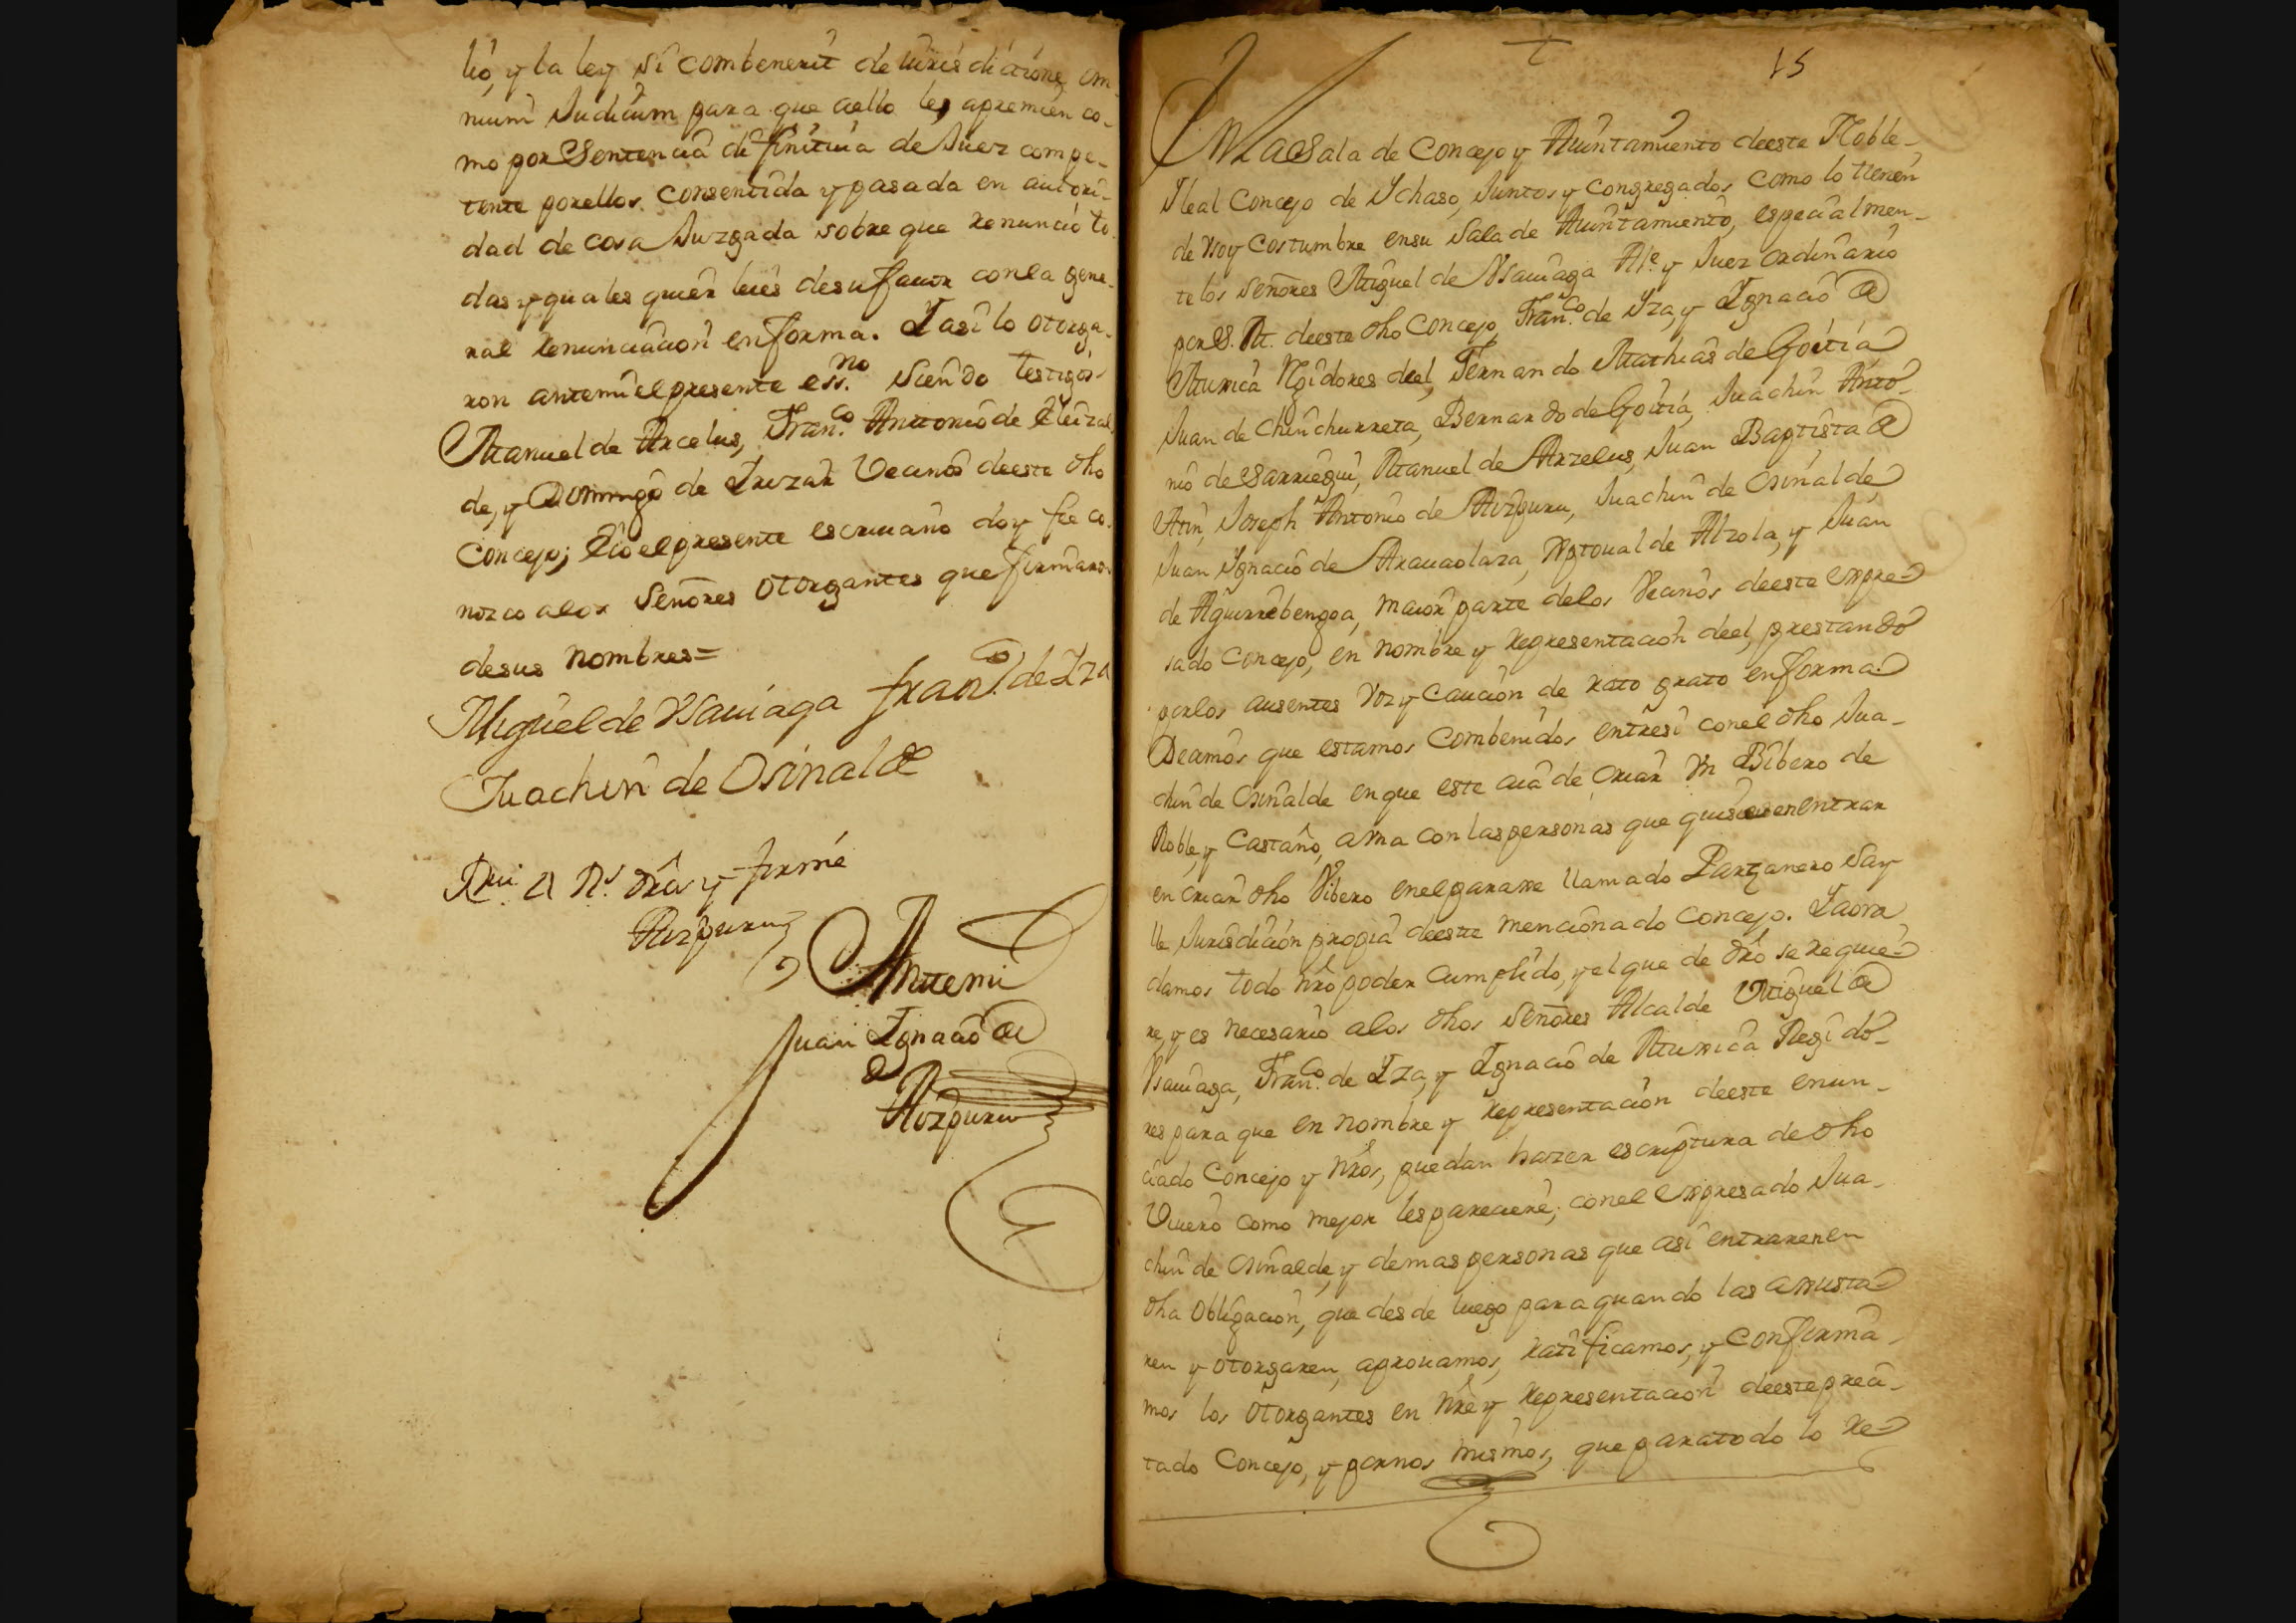 lio, y la ley si combenerit de iurisdictione om-
nium Judicum para que aello les apremien co-
mo por Sentencia difinitiua de Juez compe-
tente porellos consentida y pasada en autori-
dad de cosa Juzgada sobre que renunció to-
das y quales quier leies desufauor conla gene-
ral renunciacion enforma. Y asi lo otorga-
ron antemi el presente ess.no siendo testigos
Manuel de Arcelus, Fran.co Antonio de Eleizal
de, y Domingo de Irizar Vecinos deeste dho
Concejo; E io el presente escriuano doy fee co-
nozco alos Señores otorgantes que firmaron
desus nombres=
Miguel de Vsauiaga fran.co de Iza
Juachin de Osinalde
Rui. a Rs. dros y firmé
Aizpuru
Antemi
Juan Ignacio de
Aizpuru
15
En la Sala de Concejo y Auintamiento deeste Noble
Y leal Concejo de Ychaso, Juntos y congregados como lo tienen
de vso y costumbre ensu Sala de Auintamiento, especialmen-
te los Señores Miguel de Vsauiaga Al.e y Juez ordinario
por S. M. deeste dho Concejo, Fran.co de Iza, y Ignacio de
Mugica Rexidores deel, Fernando Mathias de Goitia
Juan de Chinchurreta, Bernardo de Goitia, Juachin Anto-
nio de Sarriegui, Manuel de Arzelus, Juan Baptista de
Arin, Joseph Antonio de Aizpuru, Juachin de Osinalde
Juan Ignacio de Arauaolaza, Xptoual de Alzola, y Juan
de Aguirrebengoa, maior parte delos Vecinos deeste expre-
sado Concejo, en nombre y representacion deel, prestando
porlos ausentes voz y caucion de rato grato enforma
Decimos que estamos combenidos entresi conel dho Jua-
chin de Osinalde enque este aia de criar Vn Bibero de
Roble, y Castaño, a vna con las personas que quisieren entrar
en criar dho Vibero enel paraxe llamado Parzanero Say
le Jurisdicion propia deeste mencionado Concejo. Y aora
damos todo nro poder cumplido, y el que de dro se requie-
re, y es necesario alos dhos Señores Alcalde Miguel de
Vsauiaga, Fran.co de Iza, y Ignacio de Mugica Regido-
res para que en nombre y representacion deeste enun-
ciado Concejo y nros, puedan hazer escriptura de dho
Viuero como mejor les pareciere, conel expresado Jua-
chin de Osinalde, y demas personas que asi entraren en
dha obligacion, que desde luego para quando las axusta-
ren y otorgaren, aprouamos, ratificamos, y confirma-
mos los otorgantes en nre y representacion deeste preci-
tado Concejo, y pornos mismos, que para todo lo re-